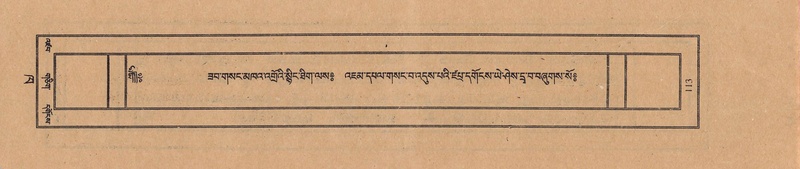 ཟབ་གསང་མཁའ་འགྲོའི་སྙིང་ཐིག་ལས༔ འཇམ་དཔལ་གསང་བ་འདུས་པའི་ཛཔྲ་དགོངས་ཡེ་ཤེས་དྲྭ་བ་བཞུགས་སོ༔
113